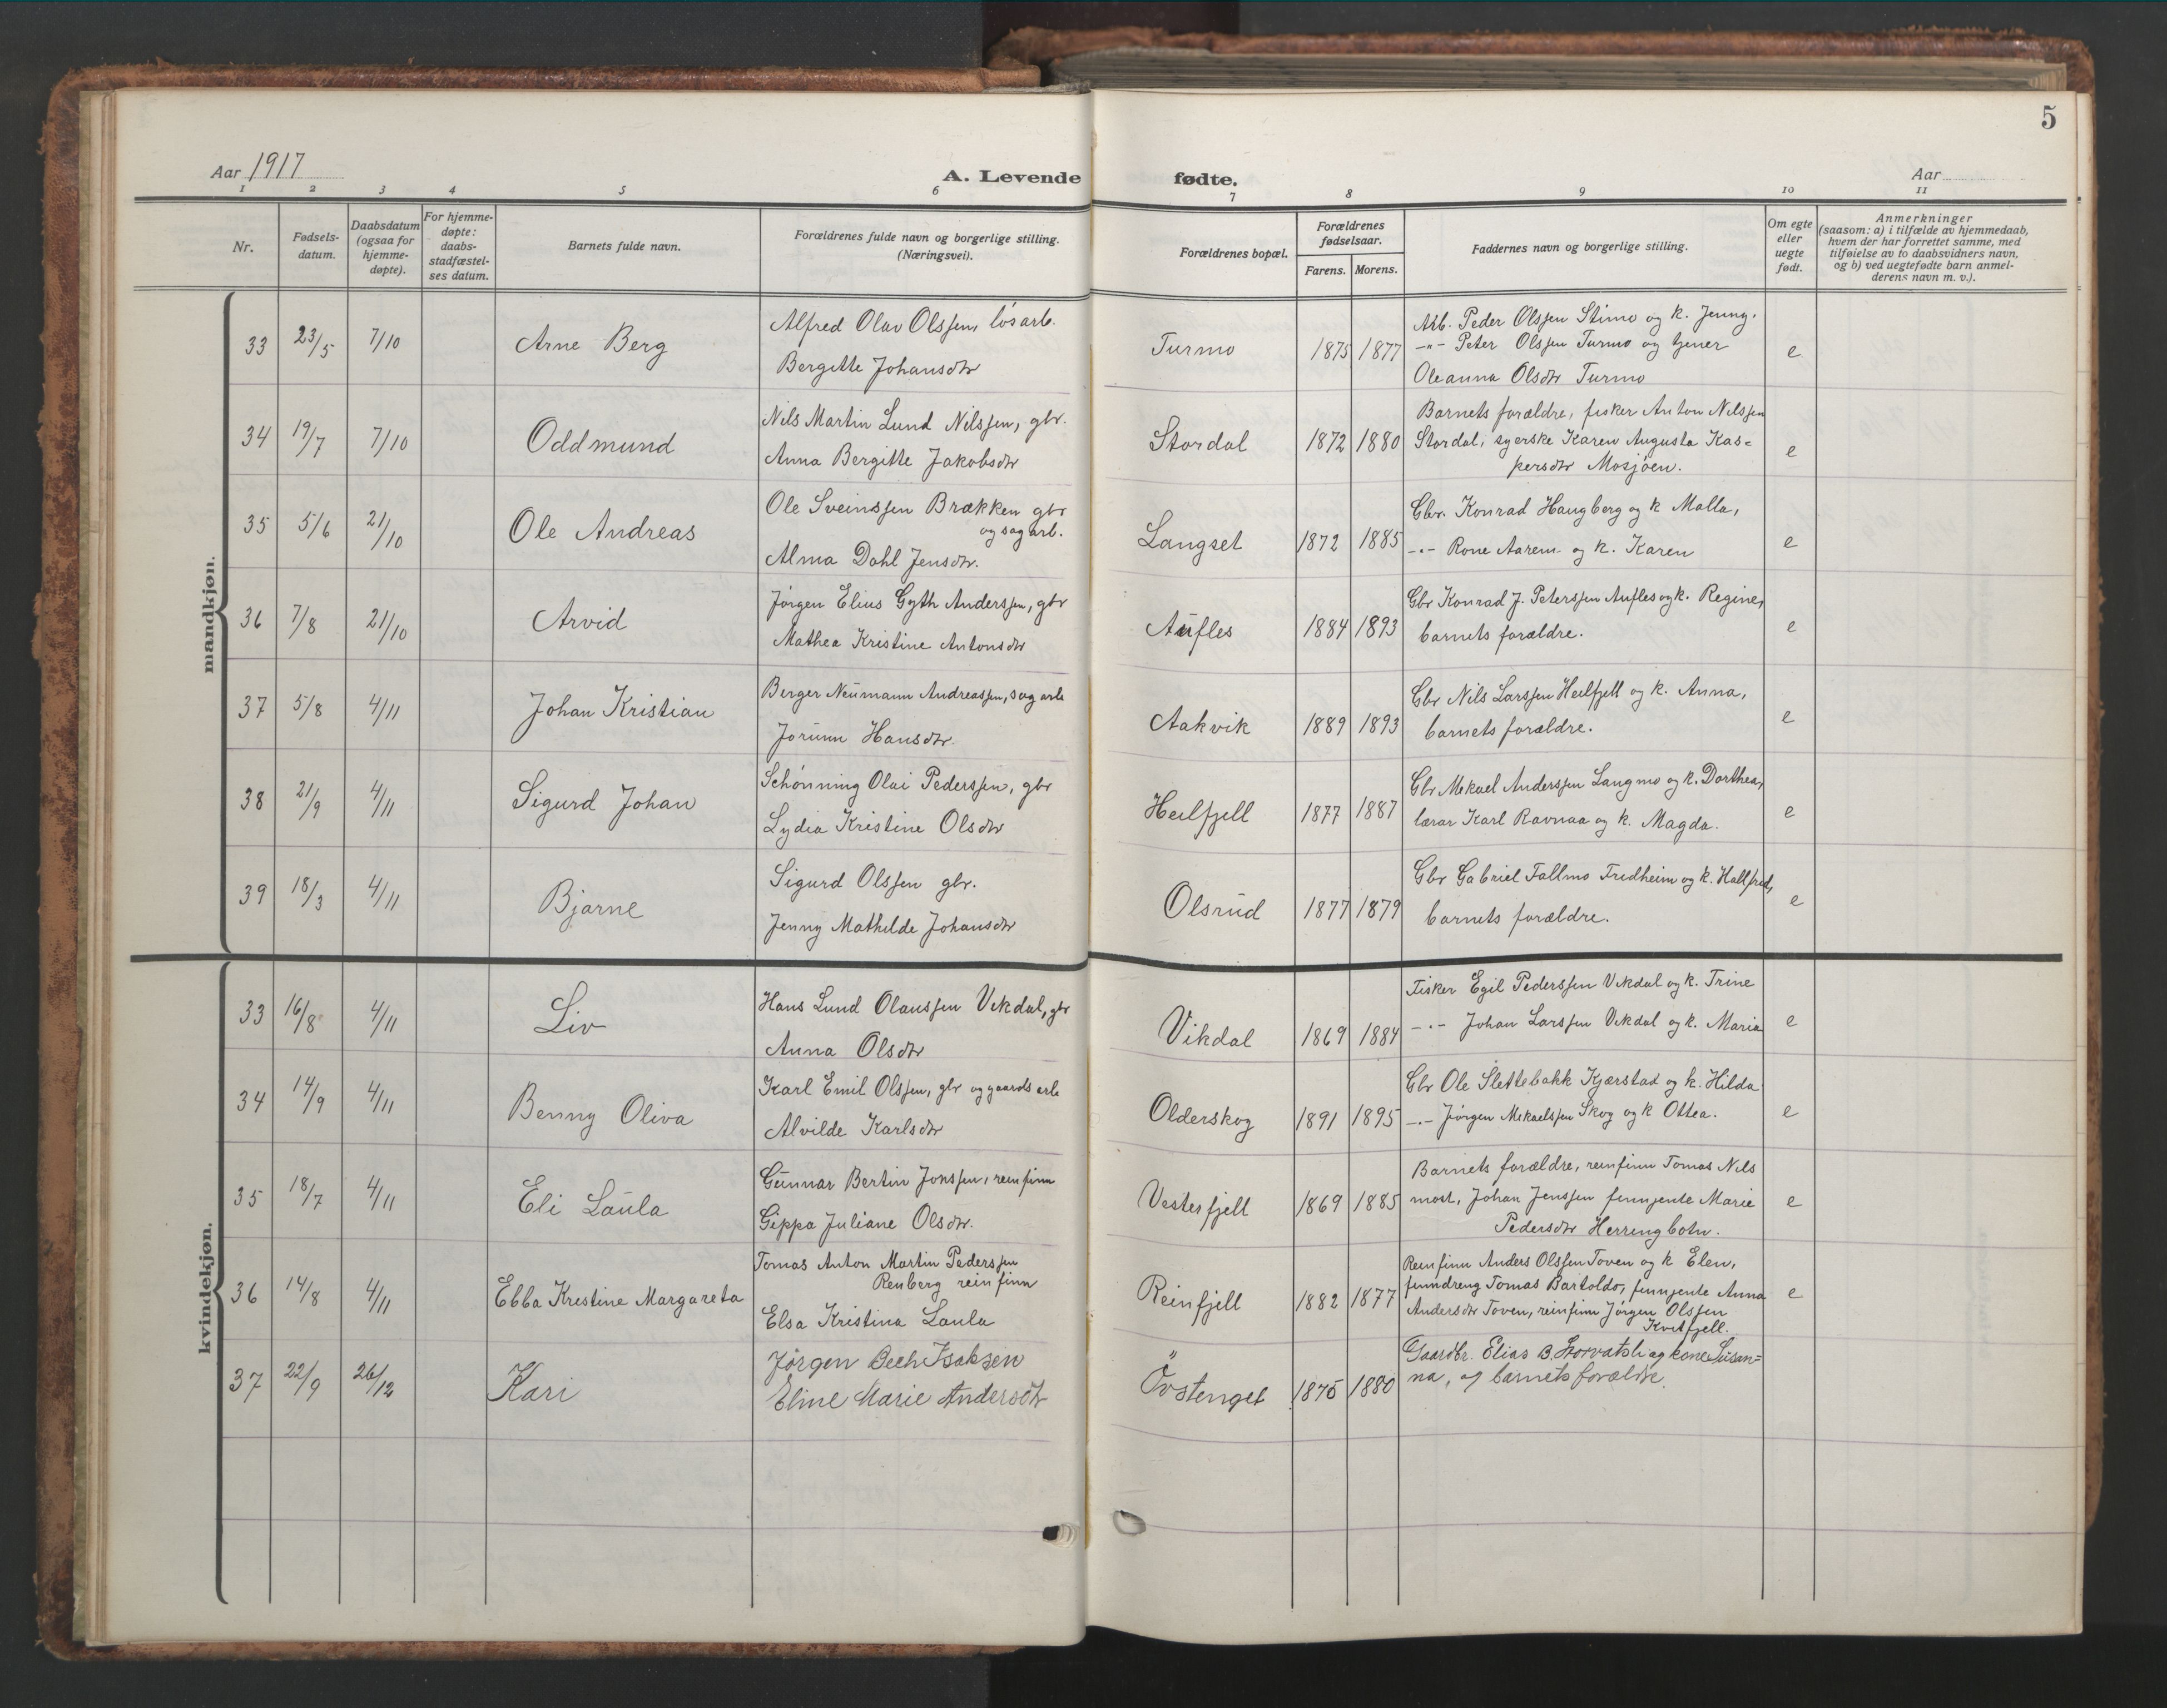 5
Aar 1917
A. Levende fødte.
Aar
1 2 3 4 5 6 7 8 9 10 11
Nr.
Fødsels-
datum.
Daabsdatum
(ogsaa for
hjemme-
døpte).
For hjemme-
døpte:
daabs-
stadfæstel-
ses datum.
Barnets fulde navn.
Forældrenes fulde navn og borgerlige stilling.
(Næringsvei).
Forældrenes bopæl.
Forældrenes
fødselsaar.
Farens. Morens.
Faddernes navn og borgerlige stilling.
Om egte
eller
uegte
født.
Anmerkninger
(saasom: a) i tilfælde av hjemmedaab,
hvem der har forrettet samme, med
tilføielse av to daabsvidners navn,
og b) ved uegtefødte barn anmel-
derens navn m. v.).
mandkjøn.
33 23/5 7/10 Arne Berg
Alfred Olav Olssen, løsarb.
Bergitte Johansdtr
Turmo 1875 1877
Arb. Peder Olssen Stimo og k. Jenny.
-"- Peter Olssen Turmo og tjener
Oleanna Olsdtr Turmo
e
34 19/7 7/10 Oddmund
Nils Martin Lund Nilssen, gbr.
Anna Bergitte Jakobsdtr
Stordal 1872 1880
Barnets forældre, fisker Anton Nilssen
Stordal, syerske Karen Augusta Kas=
persdtr Mosjøen.
e
35 5/6 21/10 Ole Andreas
Ole Sveinssen Brækken gbr
og sagarb.
Alma Dahl Jensdtr.
Langset 1872 1885
Gbr. Konrad Haugberg og k Malla,
-"- Rone Aarem og k. Karen
e
36 7/8 21/10 Arvid
Jørgen Elius Gyth Anderssen, gbr
Mathea Kristine Antonsdtr
Aufles 1884 1893
Gbr Konrad J. Peterssen Aufles og k. Regine,
barnets forældre.
e
37 5/8 4/11 Johan Kristian
Berger Neumann Andreassen, sagarb
Jorunn Hansdtr.
Aakvik 1889 1893
Gbr Nils Larssen Heilfjell og k. Anna,
barnets forældre.
e
38 21/9 4/11 Sigurd Johan
Schønning Olai Pederssen, gbr
Lydia Kristine Olsdtr
Heilfjell 1877 1887
Gbr Mekael Anderssen Langmo og k. Dorthea,
lærar Karl Ravnaa og k. Magda.
e
39 18/3 4/11 Bjarne
Sigurd Olssen gbr.
Jenny Mathilde Johansdtr
Olsrud 1877 1879
Gbr Gabriel Fallmo Fredheim og k. Hallfred,
barnets forældre.
e
kvindekjøn.
33 16/8 4/11 Liv
Hans Lund Olaussen Vikdal, gbr
Anna Olsdtr
Vikdal 1869 1884
Fisker Egil Pederssen Vikdal og k. Trine
-"- Johan Larssen Vikdal og k. Maria
e
34 14/9 4/11 Benny Oliva
Karl Emil Olssen, gbr og gaardsarb
Alvilde Karlsdtr
Olderskog 1891 1895
Gbr Ole Slettebakk Kjærstad og k. Hilda
-"- Jørgen Mekaelssen Skog og k Ottea.
e
35 18/7 4/11 Eli Laula
Gunnar Bertin Jonssen, reinfinn
Gippa Juliane Olsdtr.
Vesterfjell 1869 1885
Barnets forældre, reinfinn Tomas Nils
most, Johan Jenssen finnjente Marie
Pedersdtr Herringbotn.
e
36 14/8 4/11 Ebba Kristine Margareta
Tomas Anton Martin Pederssen
Renberg reinfinn
Elsa Kristina Laula
Reinfjell 1882 1877
Reinfinn Anders Olssen Toven og k Elen,
finndreng Tomas Bartoldo, finnjente Anna
Andersdtr Toven, reinfinn Jørgen Olssen
Kvitfjell.
e
37 22/9 26/12 Kari
Jørgen Bech Isaksen
Eline Marie Andersdtr
Øvstenget 1875 1880
Gaardbr. Elias B. Storvatsli og kone Susan=
na, og barnets forældre.